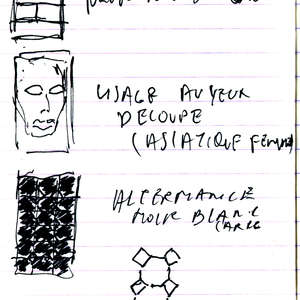 VISAGE AU YEUX
DECOUPE
(ASIATIQUE FEMME)
ALTERNANCE
NOIR BLANC
CARRE